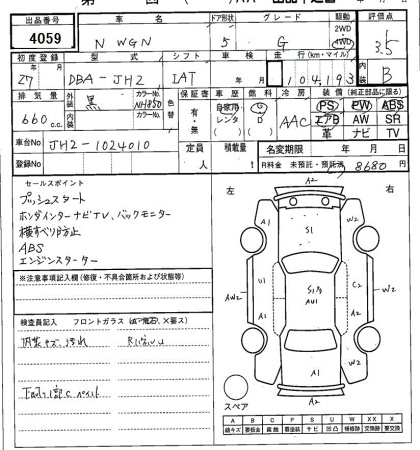 出品番号 車名 ドア形状 グレード 駆動 評価点
4059 N WGN 5 G 2WD 4WD 3.5
初度登録 型式 シフト 車検 走行(km・マイル) 内装
27年 DBA-JH2 IAT 年 月 104,193 B
排気量 外装色 黒 カラーNo. NH850 色替 カラーNo. 保証書 車歴 燃料 冷房 装備(純正部品に限る)
660c.c. 有・無 自家用 レンタ G D AAC PS PW ABS
エアB AW SR
革 ナビ TV
車台No JH2-1024010 定員 人 積載量 名変期限 年 月 日
登録No R料金 未預託・預託済 8680円
セールスポイント
プッシュスタート
ホンダインターナビTV、バックモニター
横すべり防止
ABS
エンジンスターター
※注意事項記入欄(修復・不具合箇所および状態等)
検査員記入 フロントガラス
内装キズ、汚れ
左 右
A2
A1 S1 W2
U1 C2
AW2 AU1 W2
A1 A1
A2
スペア
A B C P S U W X XX
線キズ 要板金 腐触 要塗装 サビ 凹凸 補修跡 交換跡 要交換